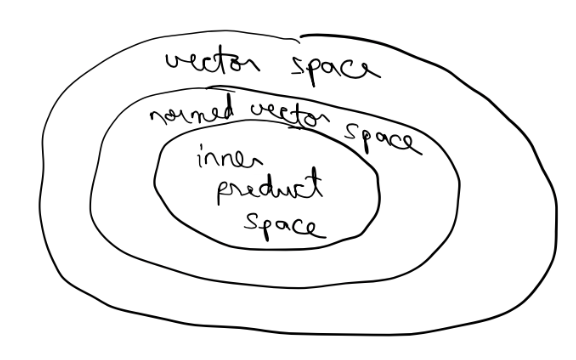 vector space
normed vector space
inner
product
space